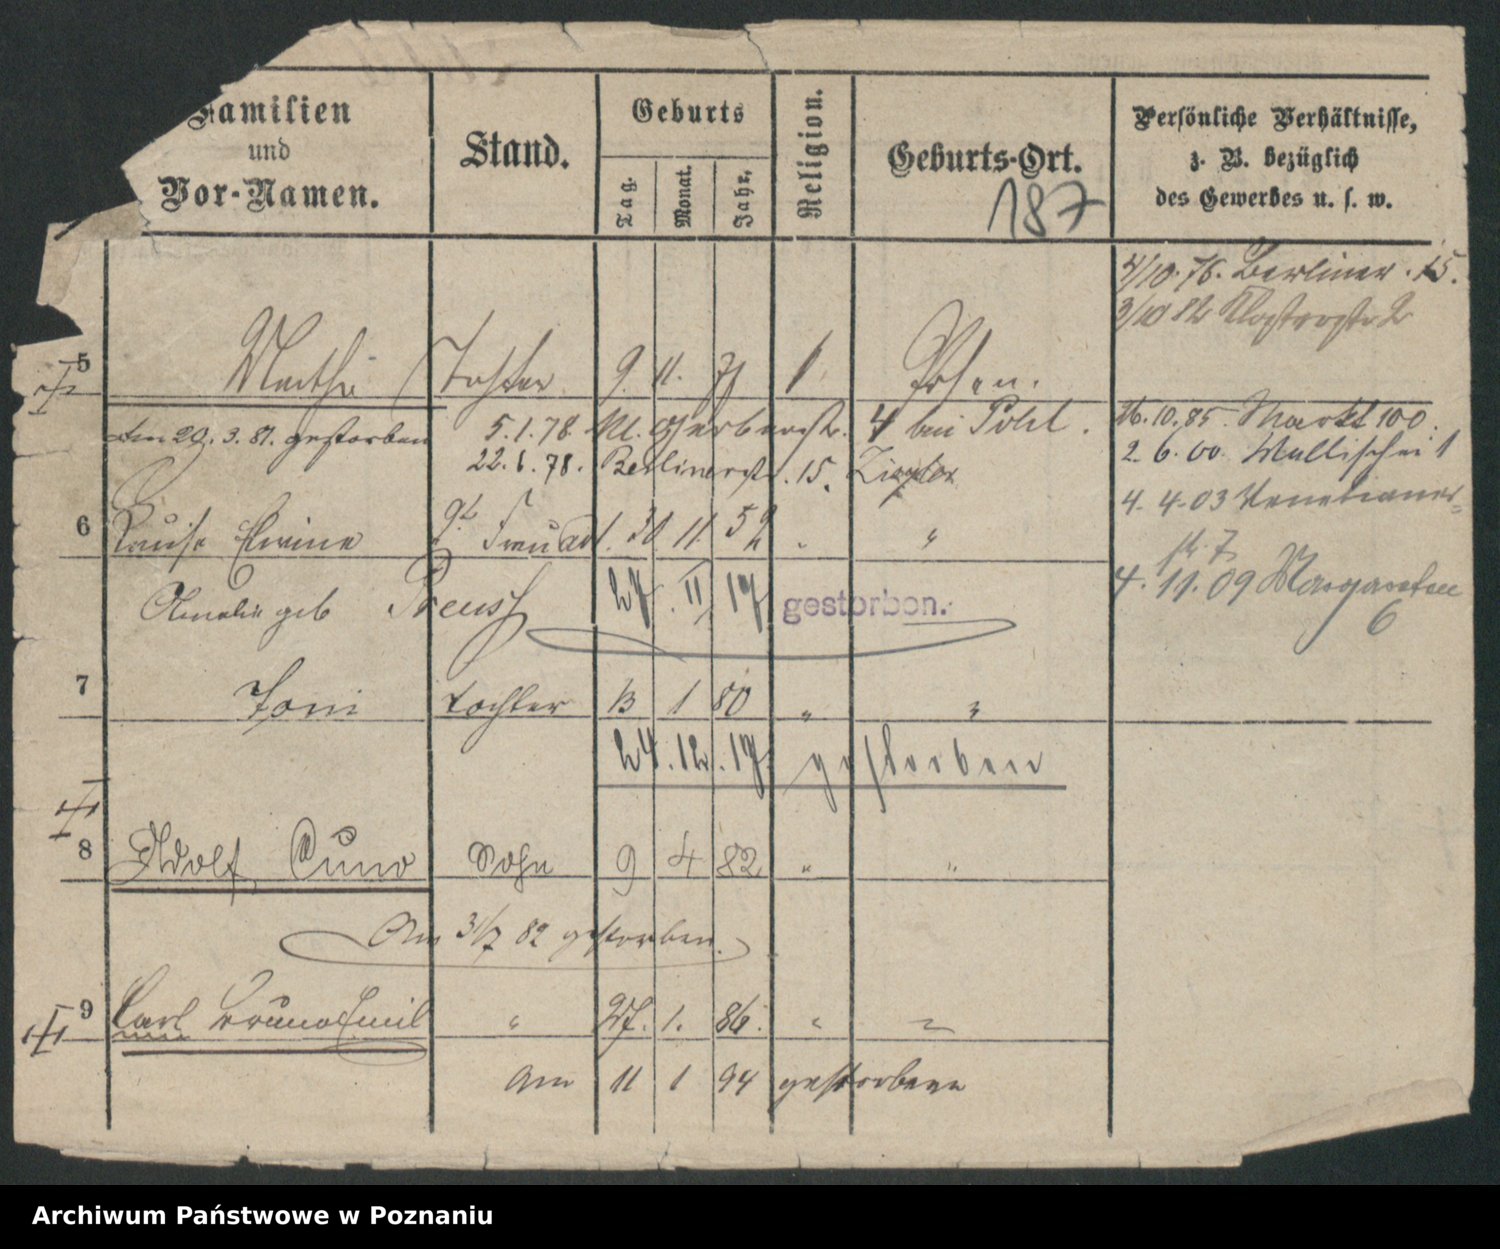 Familien
und
Vor-Namen.
Stand.
Geburts
Tag.
Monat.
Jahr.
Religion.
Geburts-Ort.
187
Persönliche Verhältnisse,
z. B. bezüglich
des Gewerbes u. s. w.
4/10. 76. Berliner. 15.
3/10 82 Klosterstr 2
5 Martha Tochter 9. 11. 71 Posen.
am 29. 3. 81. gestorben 5. 1. 78. Kl. Gerberstr. 4 bei Pohl.
22. 6. 78. Berlinerstr. 15.
26. 10. 85. Markt 100.
2. 6. 00. Wallischei 1
4. 4. 03 Venetianer=
str. 7
4. 11. 09 Margareten
6
6 Louise 30 11. 52 "
Amalie geb Preuss 27. II 17 gestorben.
7 Toni Tochter 13 1 80 " "
24. 12. 17 gestorben
8 Adolf Cuno Sohn 9 4 82 " "
Am 31/7 82 gestorben.
9 Carl Bruno Emil " 27. 1. 86. " "
am 11 1 94 gestorben
Archiwum Państwowe w Poznaniu